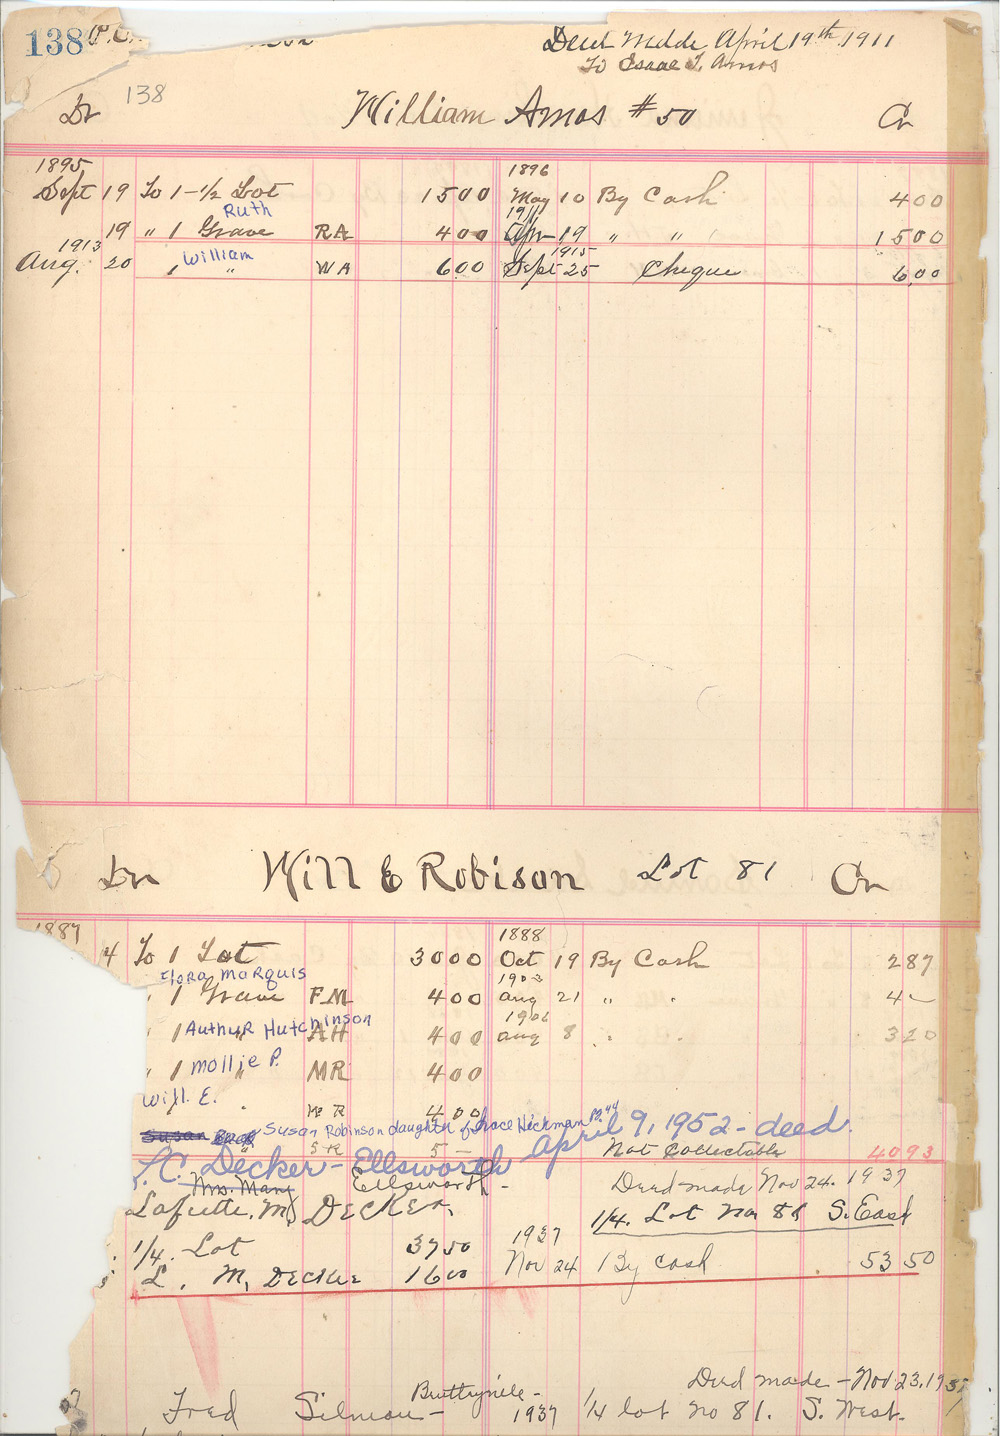 138
Deed Made April 19th 1911
To Isaac T. Amos
138
Dr William Amos #50 Cr
1895 1896
Sept 19 To 1-1/2 Lot 1500 May 10 By Cash 400
Ruth 1911
19 " 1 Grave RA 400 Apr 19 " " 1500
1913 William 1915
Aug. 20 " WA 600 Sept 25 Cheque 600
Dr Will E Robison Lot 81 Cr
1887 1888
4 To 1 Lot 3000 Oct 19 By Cash 287
Flora Marquis 1903
1 Grave FM 400 Aug 21 " 4
1906
1 Authur Hutchinson AH 400 Aug 8 320
1 Mollie P. " MR 400
Will. E. 400
Susan Susan Robinson daughter of Grace Hickman April 9, 1952 - deed.
SR 5 - Not Collectable 4093
C. Decker - Ellsworth
Mrs. Mary Ellsworth - Deed made Nov 24. 1937
Lafette. M, Decker, 1/4. Lot No 81 S. East
1/4. Lot 3750 1937
L. M, Decker 1600 Nov 24 By cash 5350
Deed made - Nov 23, 1937
Fred - 1937 1/4 lot no 81. S. West.